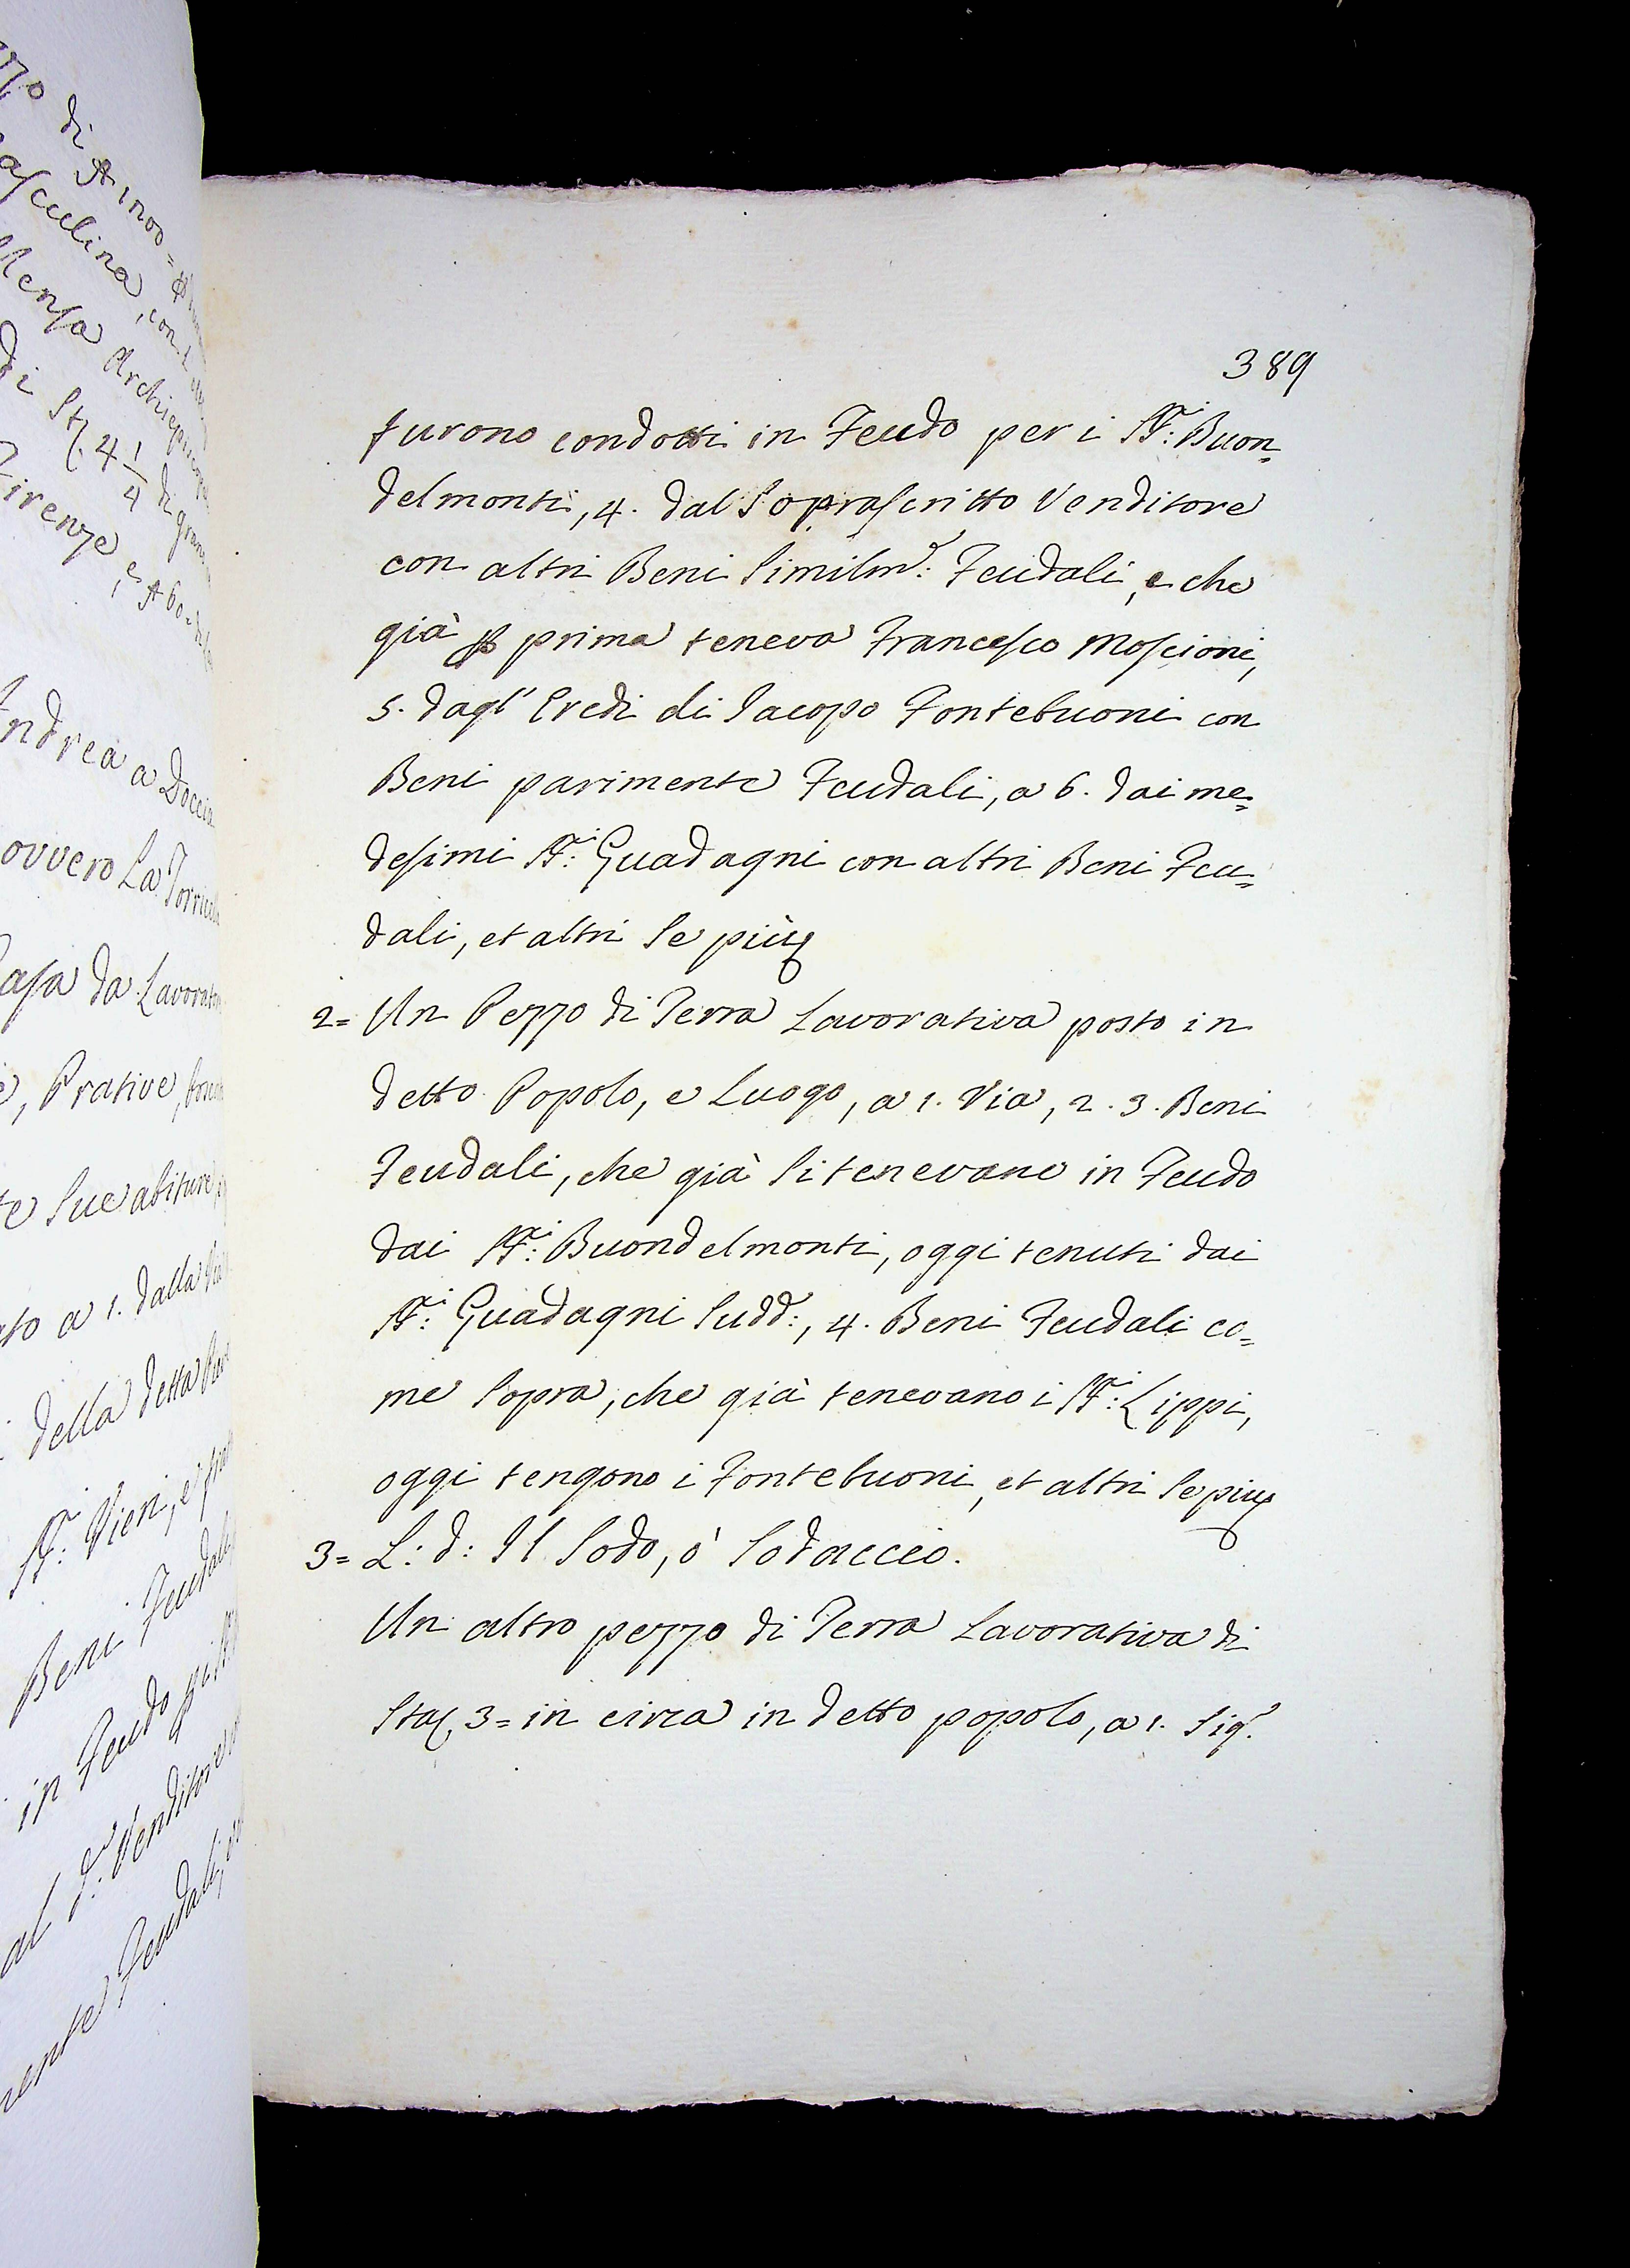 389
furono condotti in Feudo per i SS.ri: Buon=
delmonti, 4. dal Soprascritto Venditore
con altri Beni Similm.e: Feudali, e che
già p prima teneva Francesco Moscioni,
5. dagl' Eredi di Jacopo Fontebuoni con
Beni parimente Feudali, a 6. dai me=
desimi SS.ri: Guadagni con altri Beni Feu=
dali, et altri Se più
2= Un Pezzo di Terra Lavorativa posto in
detto Popolo, e Luogo, a 1. Via, 2. 3. Beni
Feudali, che già Si tenevano in Feudo
dai SS.ri: Buondelmonti, oggi tenuti dai
SS.ri: Guadagni Sudd.i:, 4. Beni Feudali co=
me Sopra, che già tenevano i SS.ri: Lippi,
oggi tengono i Fontebuoni, et altri Se più
3= L: d: Il Sodo, ò Sodaccio.
Un altro pezzo di Terra Lavorativa di
Sta, 3= in circa in detto popolo, a 1. Sig.r
di
asculina, con
Mensa Archiepiscopa
di St, 4 1/4 di gran
Firenze, e
Andrea a Doccia
ovvero La Torricella
Casa da Lavorator
e, Prative,
te Sue abiture,
ato a 1. dalla Via
della detta
SS.ri: Vieri, e
Beni Feudali
in Feudo
al Venditore
mente Feudali,